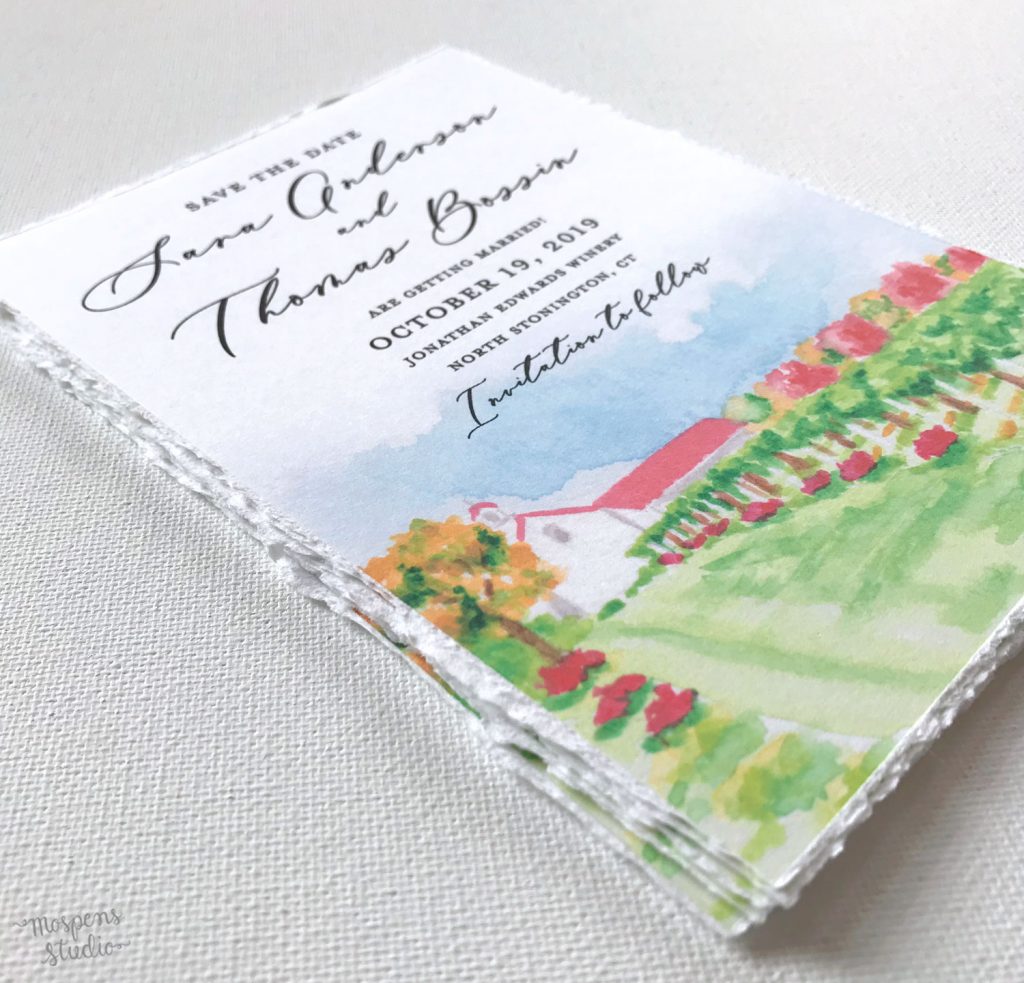 SAVE THE DATE
Sara Anderson
and
Thomas Bossin
ARE GETTING MARRIED!
OCTOBER 19, 2019
JONATHAN EDWARDS WINERY
NORTH STONINGTON, CT
Invitation to follow
Mospens
Studio